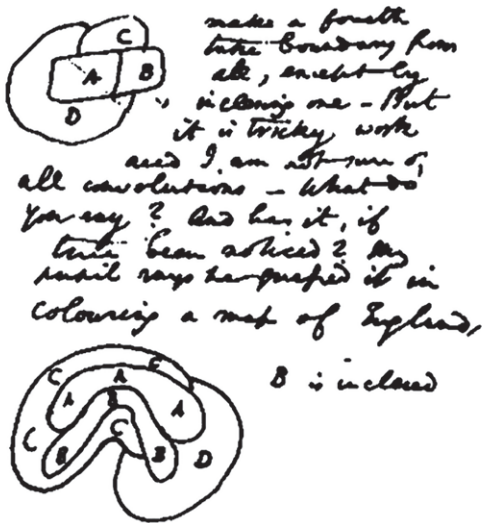 C
A B
D
make a fourth
take boundary from
all, except by
inclosing one – But
it is tricky work
and I am not sure of
all convolutions – What do
you say? And has it, if
true been noticed? My
pupil says he guessed it in
colouring a map of England,
B is inclosed
C A C
A B A
C C
B B D